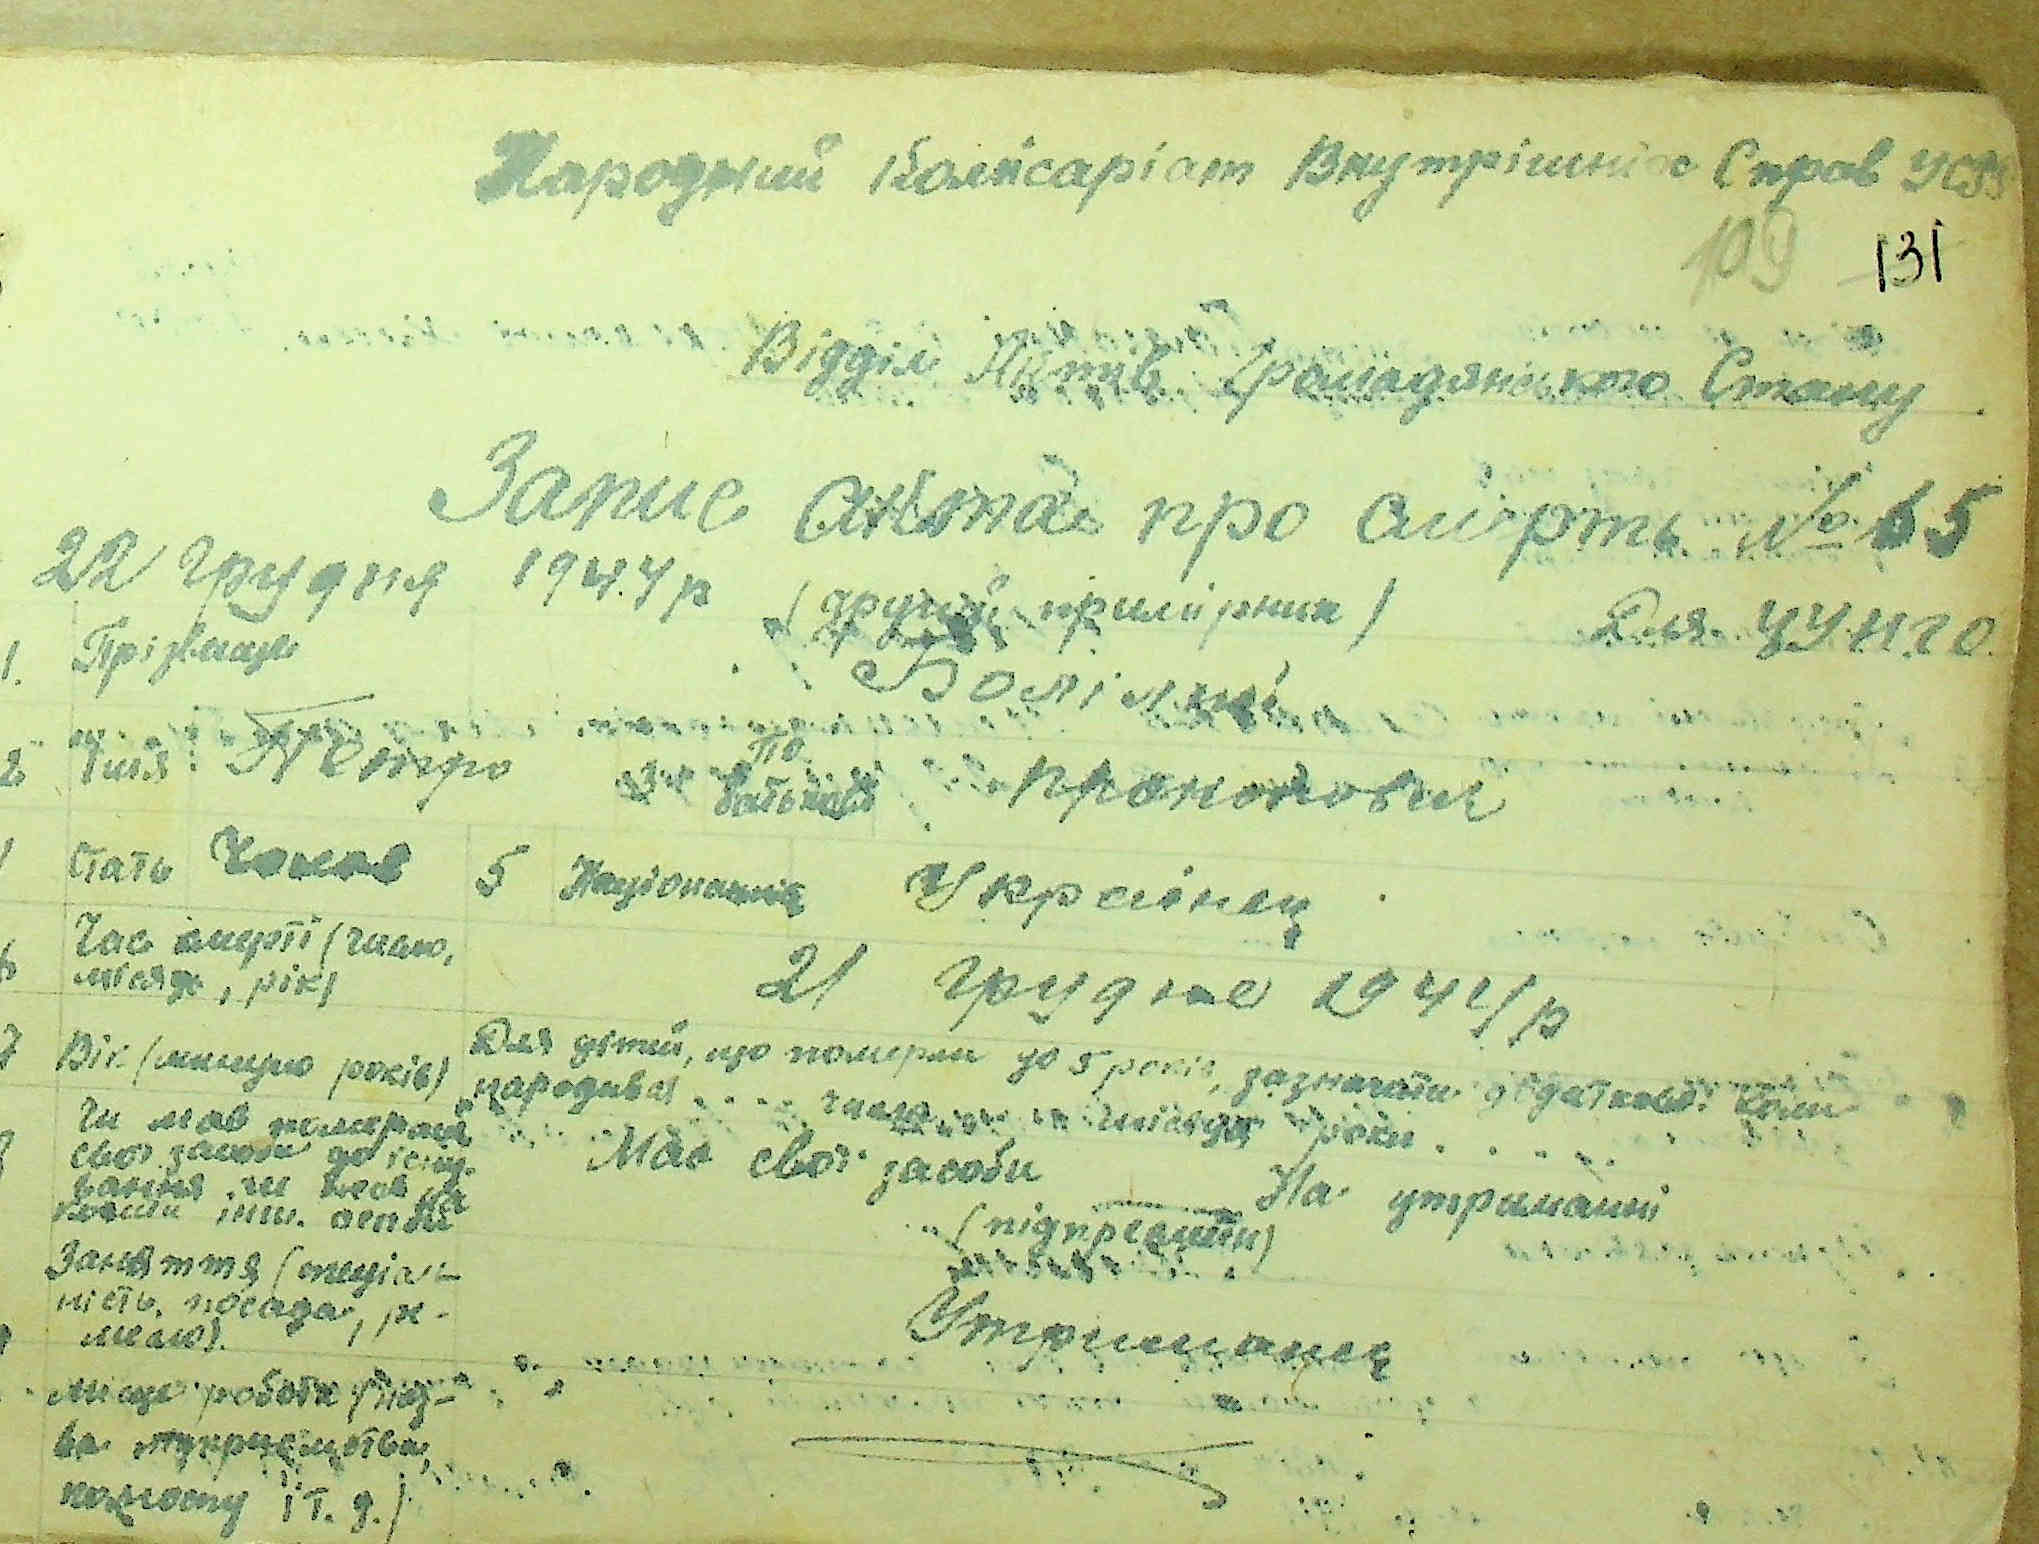 Народний Комісаріат Внутрішніх Справ УСРР
109 131
Відділ Актів Громадянського Стану
Запис акта про смерть № 65
22 грудня 1944 р (другий примірник) Для ЦУНГО
1. Прізвище
2 Імя Петро 3 По батькові Прокопович
Стать Чолов 5 Національність Українец
6 Час смерті (число, місяць, рік) 21 грудня 1944 р
7 Вік (минуло років) Для дітей, що померли до 5 років, зазначати додатково: коли
народивсь . . . . число місяць роки . . . .
Чи мав померлий
свої засоби до існу-
вання чи жив на
кошти інш. особи
Має свої засоби На утриманні
(підкреслити)
Заняття (спеціаль-
ність, посада, ре-
месло). Утриманец
Місце роботи (наз-
ва підприємства,
колгоспу і т. д.)